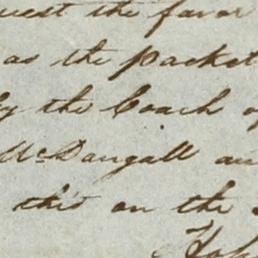 quest the favor
as the packet
by the Coach of
McDougall an
this on the
Joh